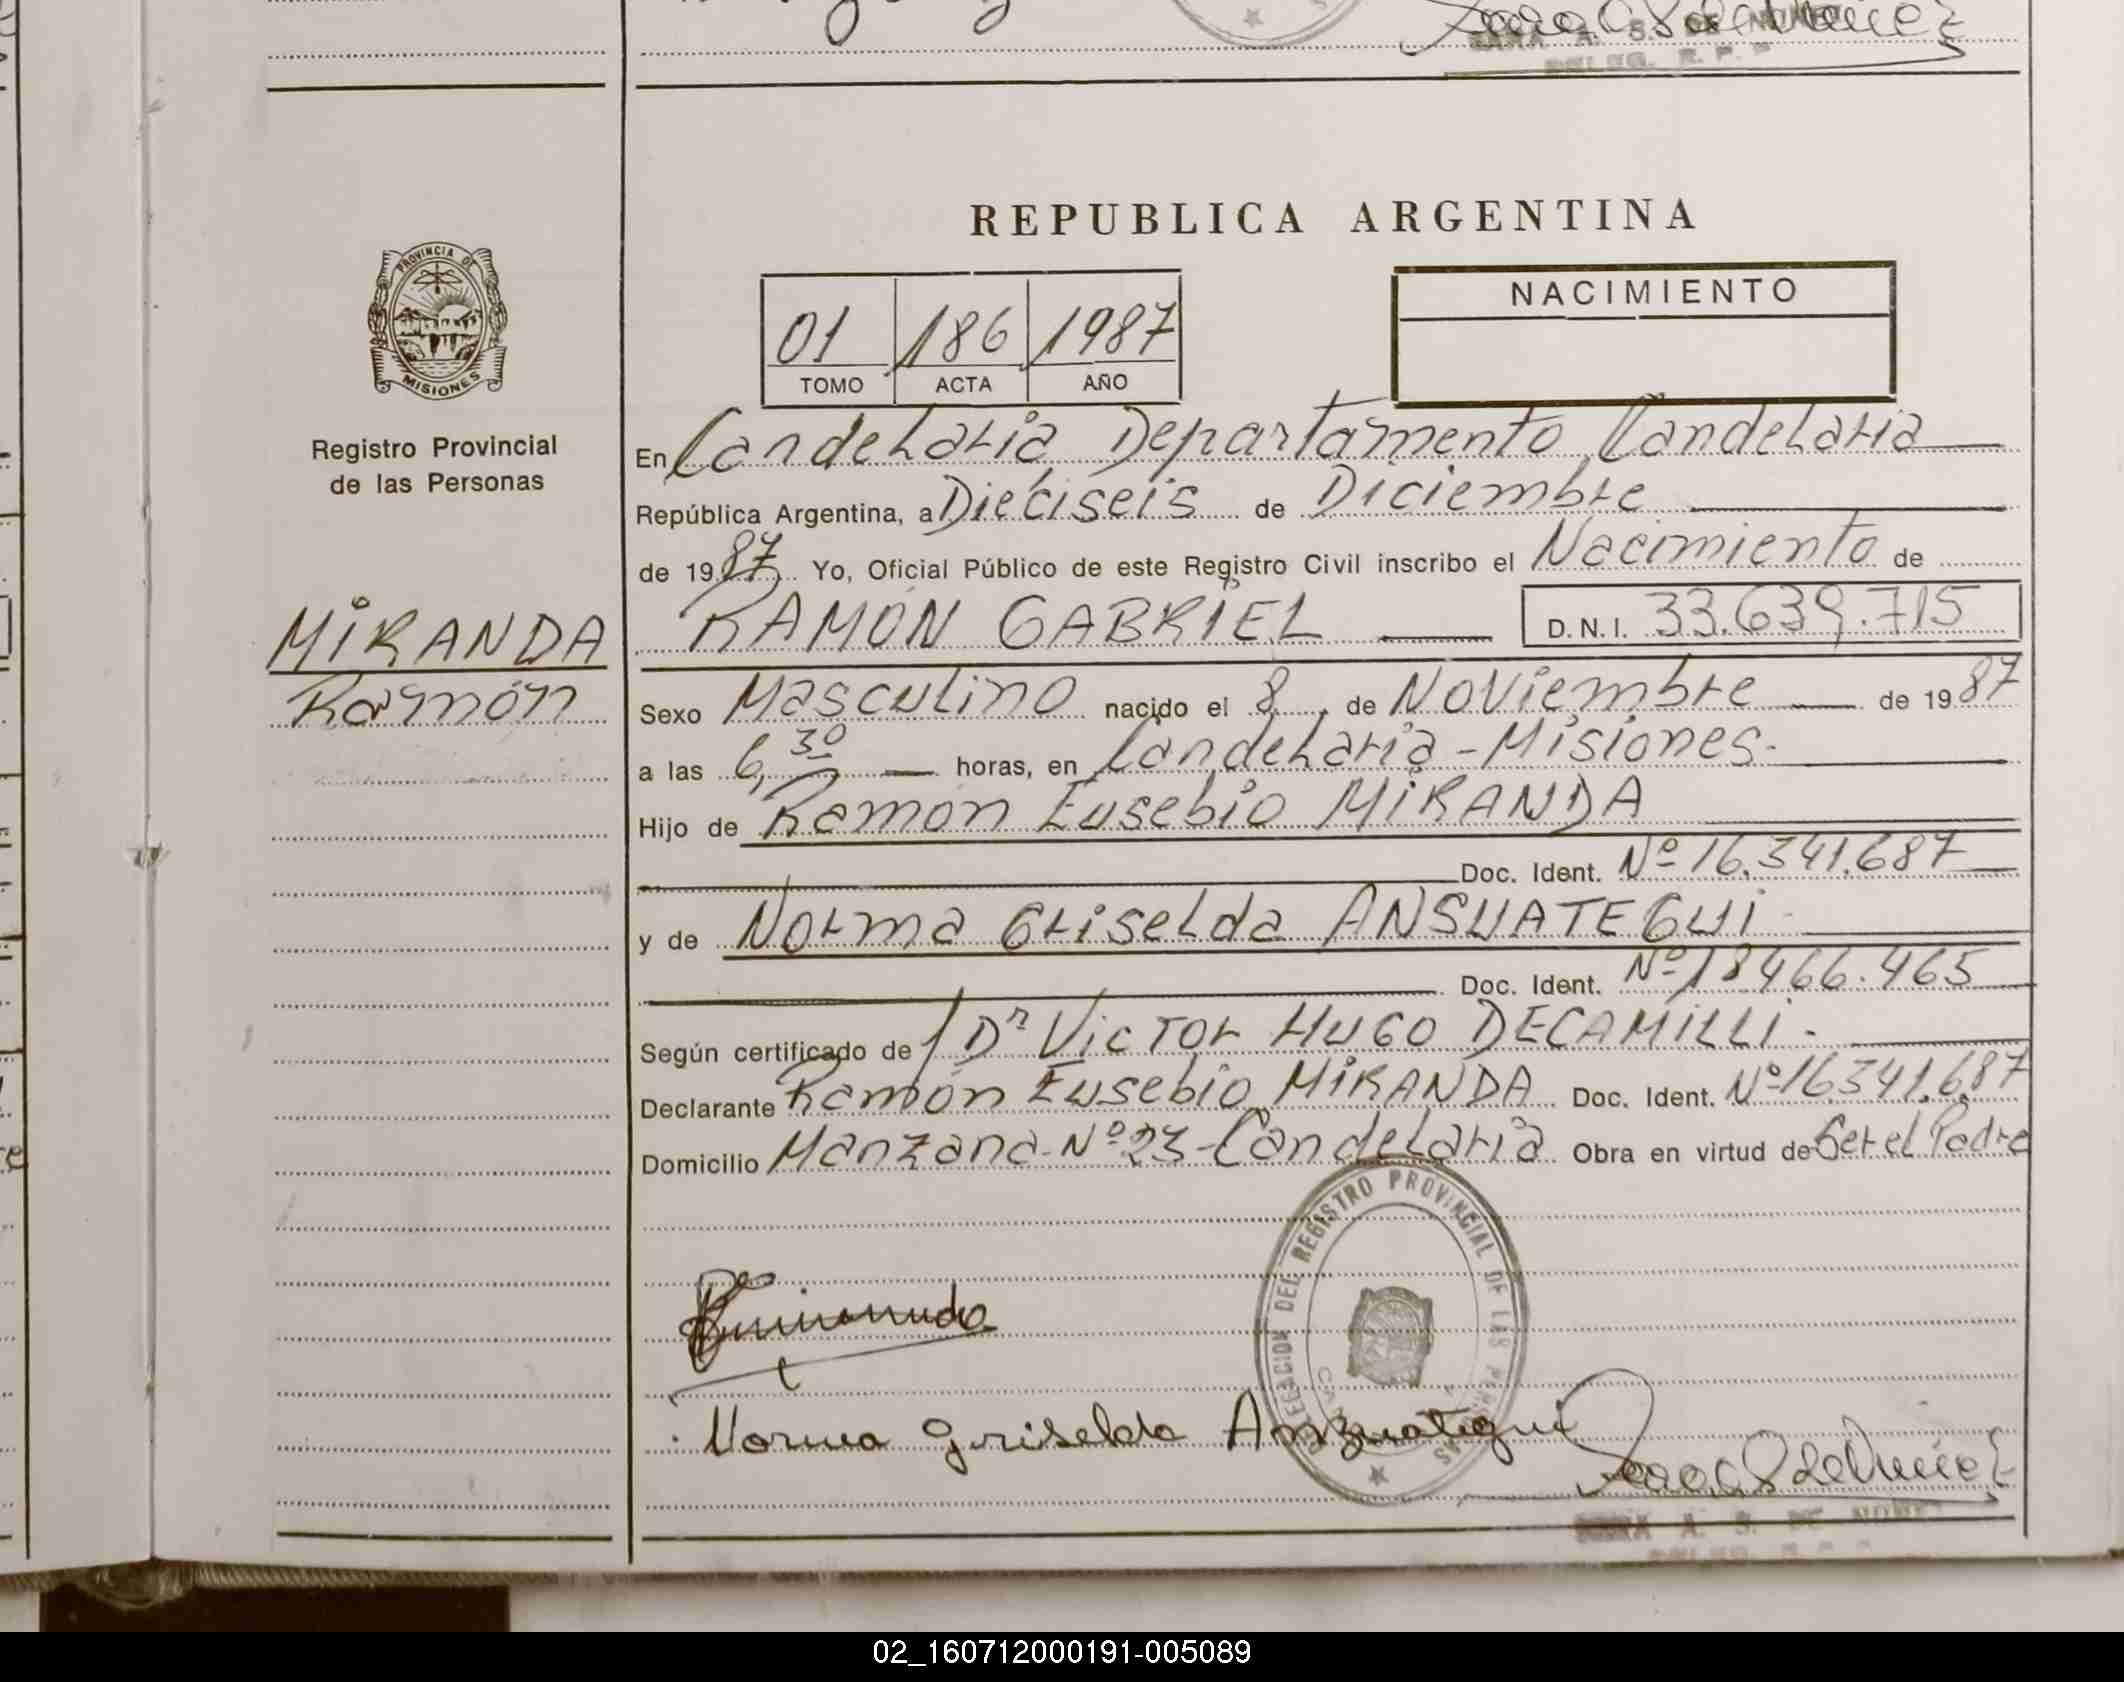 REPUBLICA ARGENTINA
PROVINCIA DE
MISIONES
Registro Provincial
de las Personas
MIRANDA
Ramón
01 186 1987
TOMO ACTA AÑO
NACIMIENTO
En Candelaria Departamento Candelaria
República Argentina, a Dieciseis de Diciembre
de 1987 Yo, Oficial Público de este Registro Civil inscribo el Nacimiento de
RAMÓN GABRIEL D.N.I. 33.639.715
Sexo Masculino nacido el 8 de Noviembre de 1987
a las 6,30 horas, en Candelaria - Misiones.
Hijo de Ramón Eusebio MIRANDA
Doc. Ident. Nº 16.341.687
y de Norma Griselda ANSUATEGUI
Doc. Ident. Nº 18466.465
Según certificado de Dr Victor HUGO DECAMILLI.
Declarante Ramón Eusebio MIRANDA Doc. Ident. Nº 16.341.687
Domicilio Manzana Nº 23 - Candelaria Obra en virtud de Ser el Padre
DELEGACION DEL REGISTRO PROVINCIAL DE LAS PERSONAS
Norma Griselda Anzuategui
A. S. DE
02_160712000191-005089